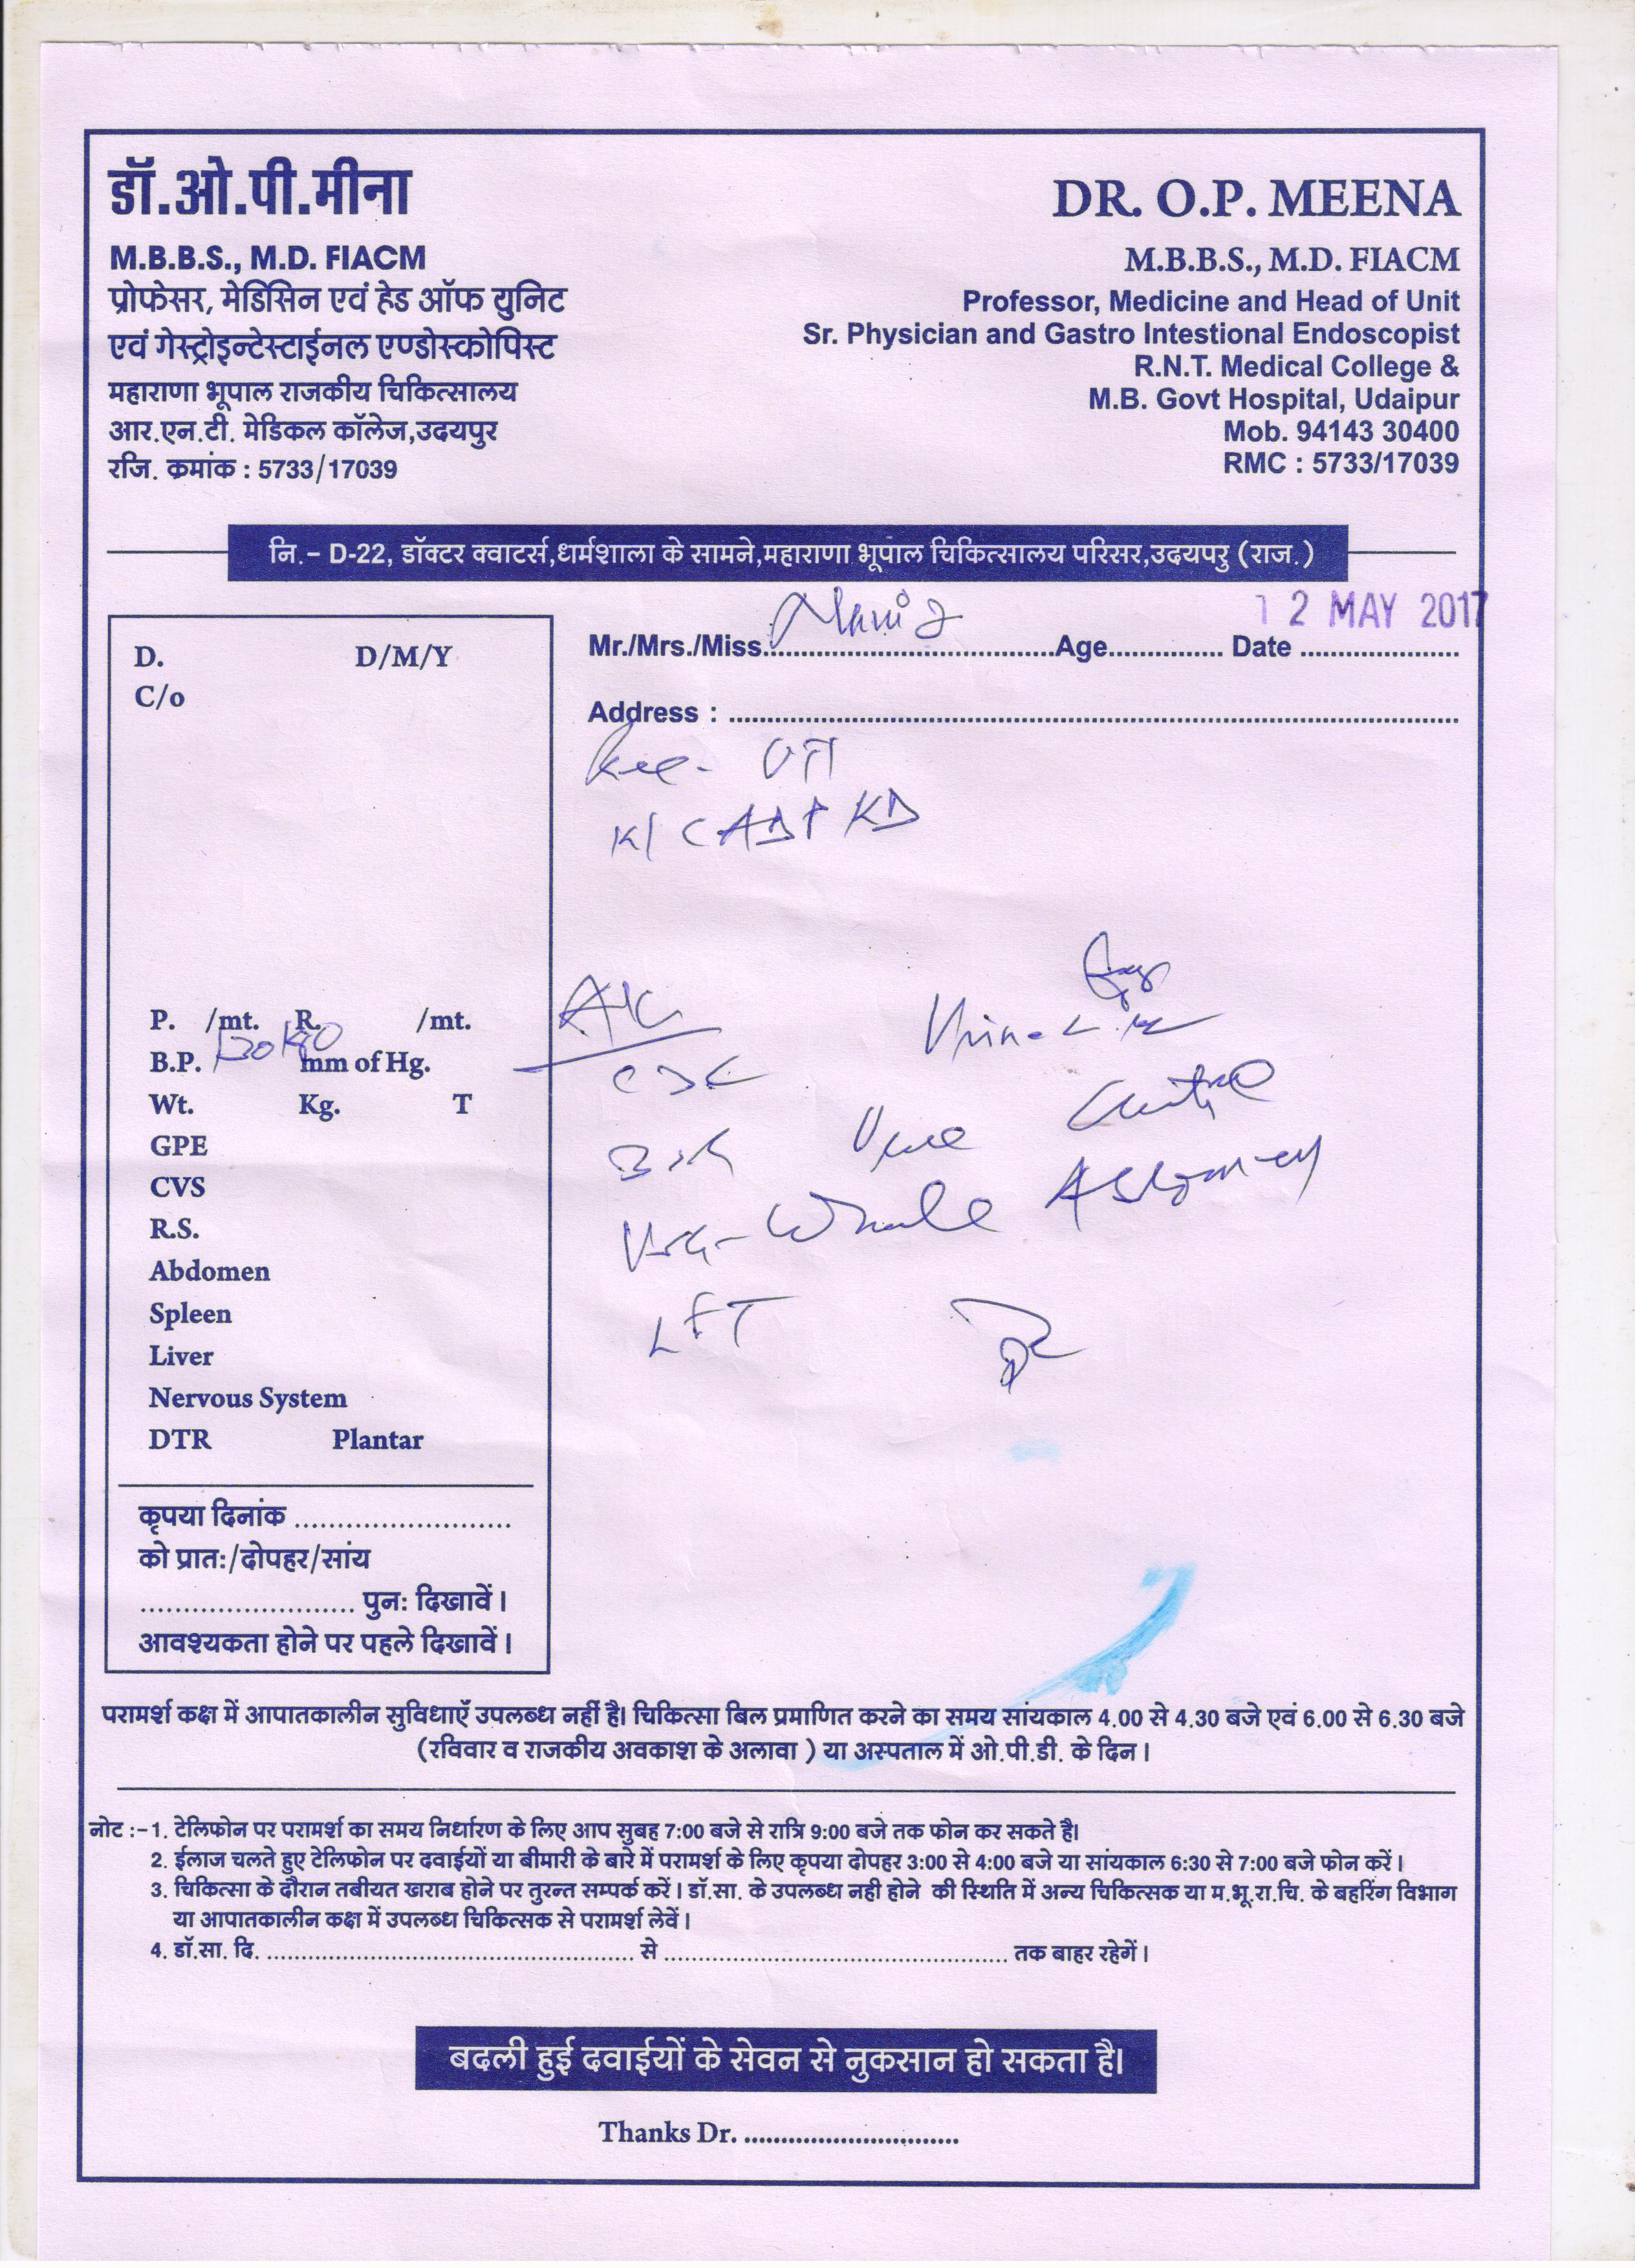 डॉ.ओ.पी.मीना
M.B.B.S., M.D. FIACM
प्रोफेसर, मेडिसिन एवं हेड ऑफ युनिट
एवं गेस्ट्रोइन्टेस्टाईनल एण्डोस्कोपिस्ट
महाराणा भूपाल राजकीय चिकित्सालय
आर.एन.टी. मेडिकल कॉलेज,उदयपुर
रजि. क्रमांक : 5733/17039
DR. O.P. MEENA
M.B.B.S., M.D. FIACM
Professor, Medicine and Head of Unit
Sr. Physician and Gastro Intestional Endoscopist
R.N.T. Medical College &
M.B. Govt Hospital, Udaipur
Mob. 94143 30400
RMC : 5733/17039
नि.– D-22, डॉक्टर क्वाटर्स,धर्मशाला के सामने,महाराणा भूपाल चिकित्सालय परिसर,उदयपरु (राज.)
12 MAY 2017
Mr./Mrs./Miss.......Age....... Date .......
Address : .......
D. D/M/Y
C/o
P. /mt. R. /mt.
B.P. 130/80 mm of Hg.
Wt. Kg. T
GPE
CVS
R.S.
Abdomen
Spleen
Liver
Nervous System
DTR Plantar
कृपया दिनांक .......
को प्रात:/दोपहर/सांय
....... पुन: दिखावें।
आवश्यकता होने पर पहले दिखावें।
UTI
Urine
CBC
Whole Abdomen
LFT
परामर्श कक्ष में आपातकालीन सुविधाएँ उपलब्ध नहीं है। चिकित्सा बिल प्रमाणित करने का समय सांयकाल 4.00 से 4.30 बजे एवं 6.00 से 6.30 बजे
(रविवार व राजकीय अवकाश के अलावा ) या अस्पताल में ओ.पी.डी. के दिन।
नोट :–1. टेलिफोन पर परामर्श का समय निर्धारण के लिए आप सुबह 7:00 बजे से रात्रि 9:00 बजे तक फोन कर सकते है।
2. ईलाज चलते हुए टेलिफोन पर दवाईयों या बीमारी के बारे में परामर्श के लिए कृपया दोपहर 3:00 से 4:00 बजे या सांयकाल 6:30 से 7:00 बजे फोन करें।
3. चिकित्सा के दौरान तबीयत खराब होने पर तुरन्त सम्पर्क करें। डॉ.सा. के उपलब्ध नही होने की स्थिति में अन्य चिकित्सक या म.भू.रा.चि. के बहरिंग विभाग
या आपातकालीन कक्ष में उपलब्ध चिकित्सक से परामर्श लेवें।
4. डॉ.सा. दि. ....... से ....... तक बाहर रहेगें।
बदली हुई दवाईयों के सेवन से नुकसान हो सकता है।
Thanks Dr. .......